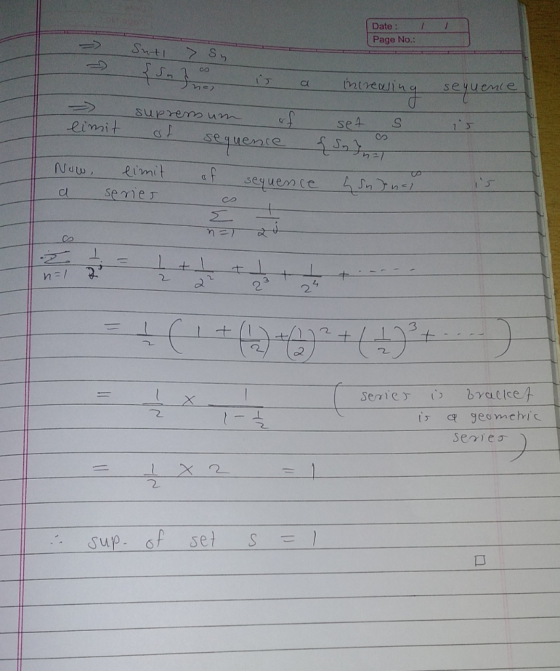 Date : / /
Page No.:
⇒ Sn+1 > Sn
⇒ {Sn}∞n=1 is a increasing sequence
⇒ supremum of set S is
limit of sequence {Sn}∞n=1
Now, limit of sequence {Sn}∞n=1 is
a series
∞Σn=1 1/2^j
∞Σn=1 1/2^j = 1/2 + 1/2^2 + 1/2^3 + 1/2^4 + ......
= 1/2 ( 1 + (1/2) + (1/2)^2 + (1/2)^3 + .... )
= 1/2 × 1/(1 - 1/2) ( series is bracket
is a geometric
series )
= 1/2 × 2 = 1
∴ sup. of set S = 1
□